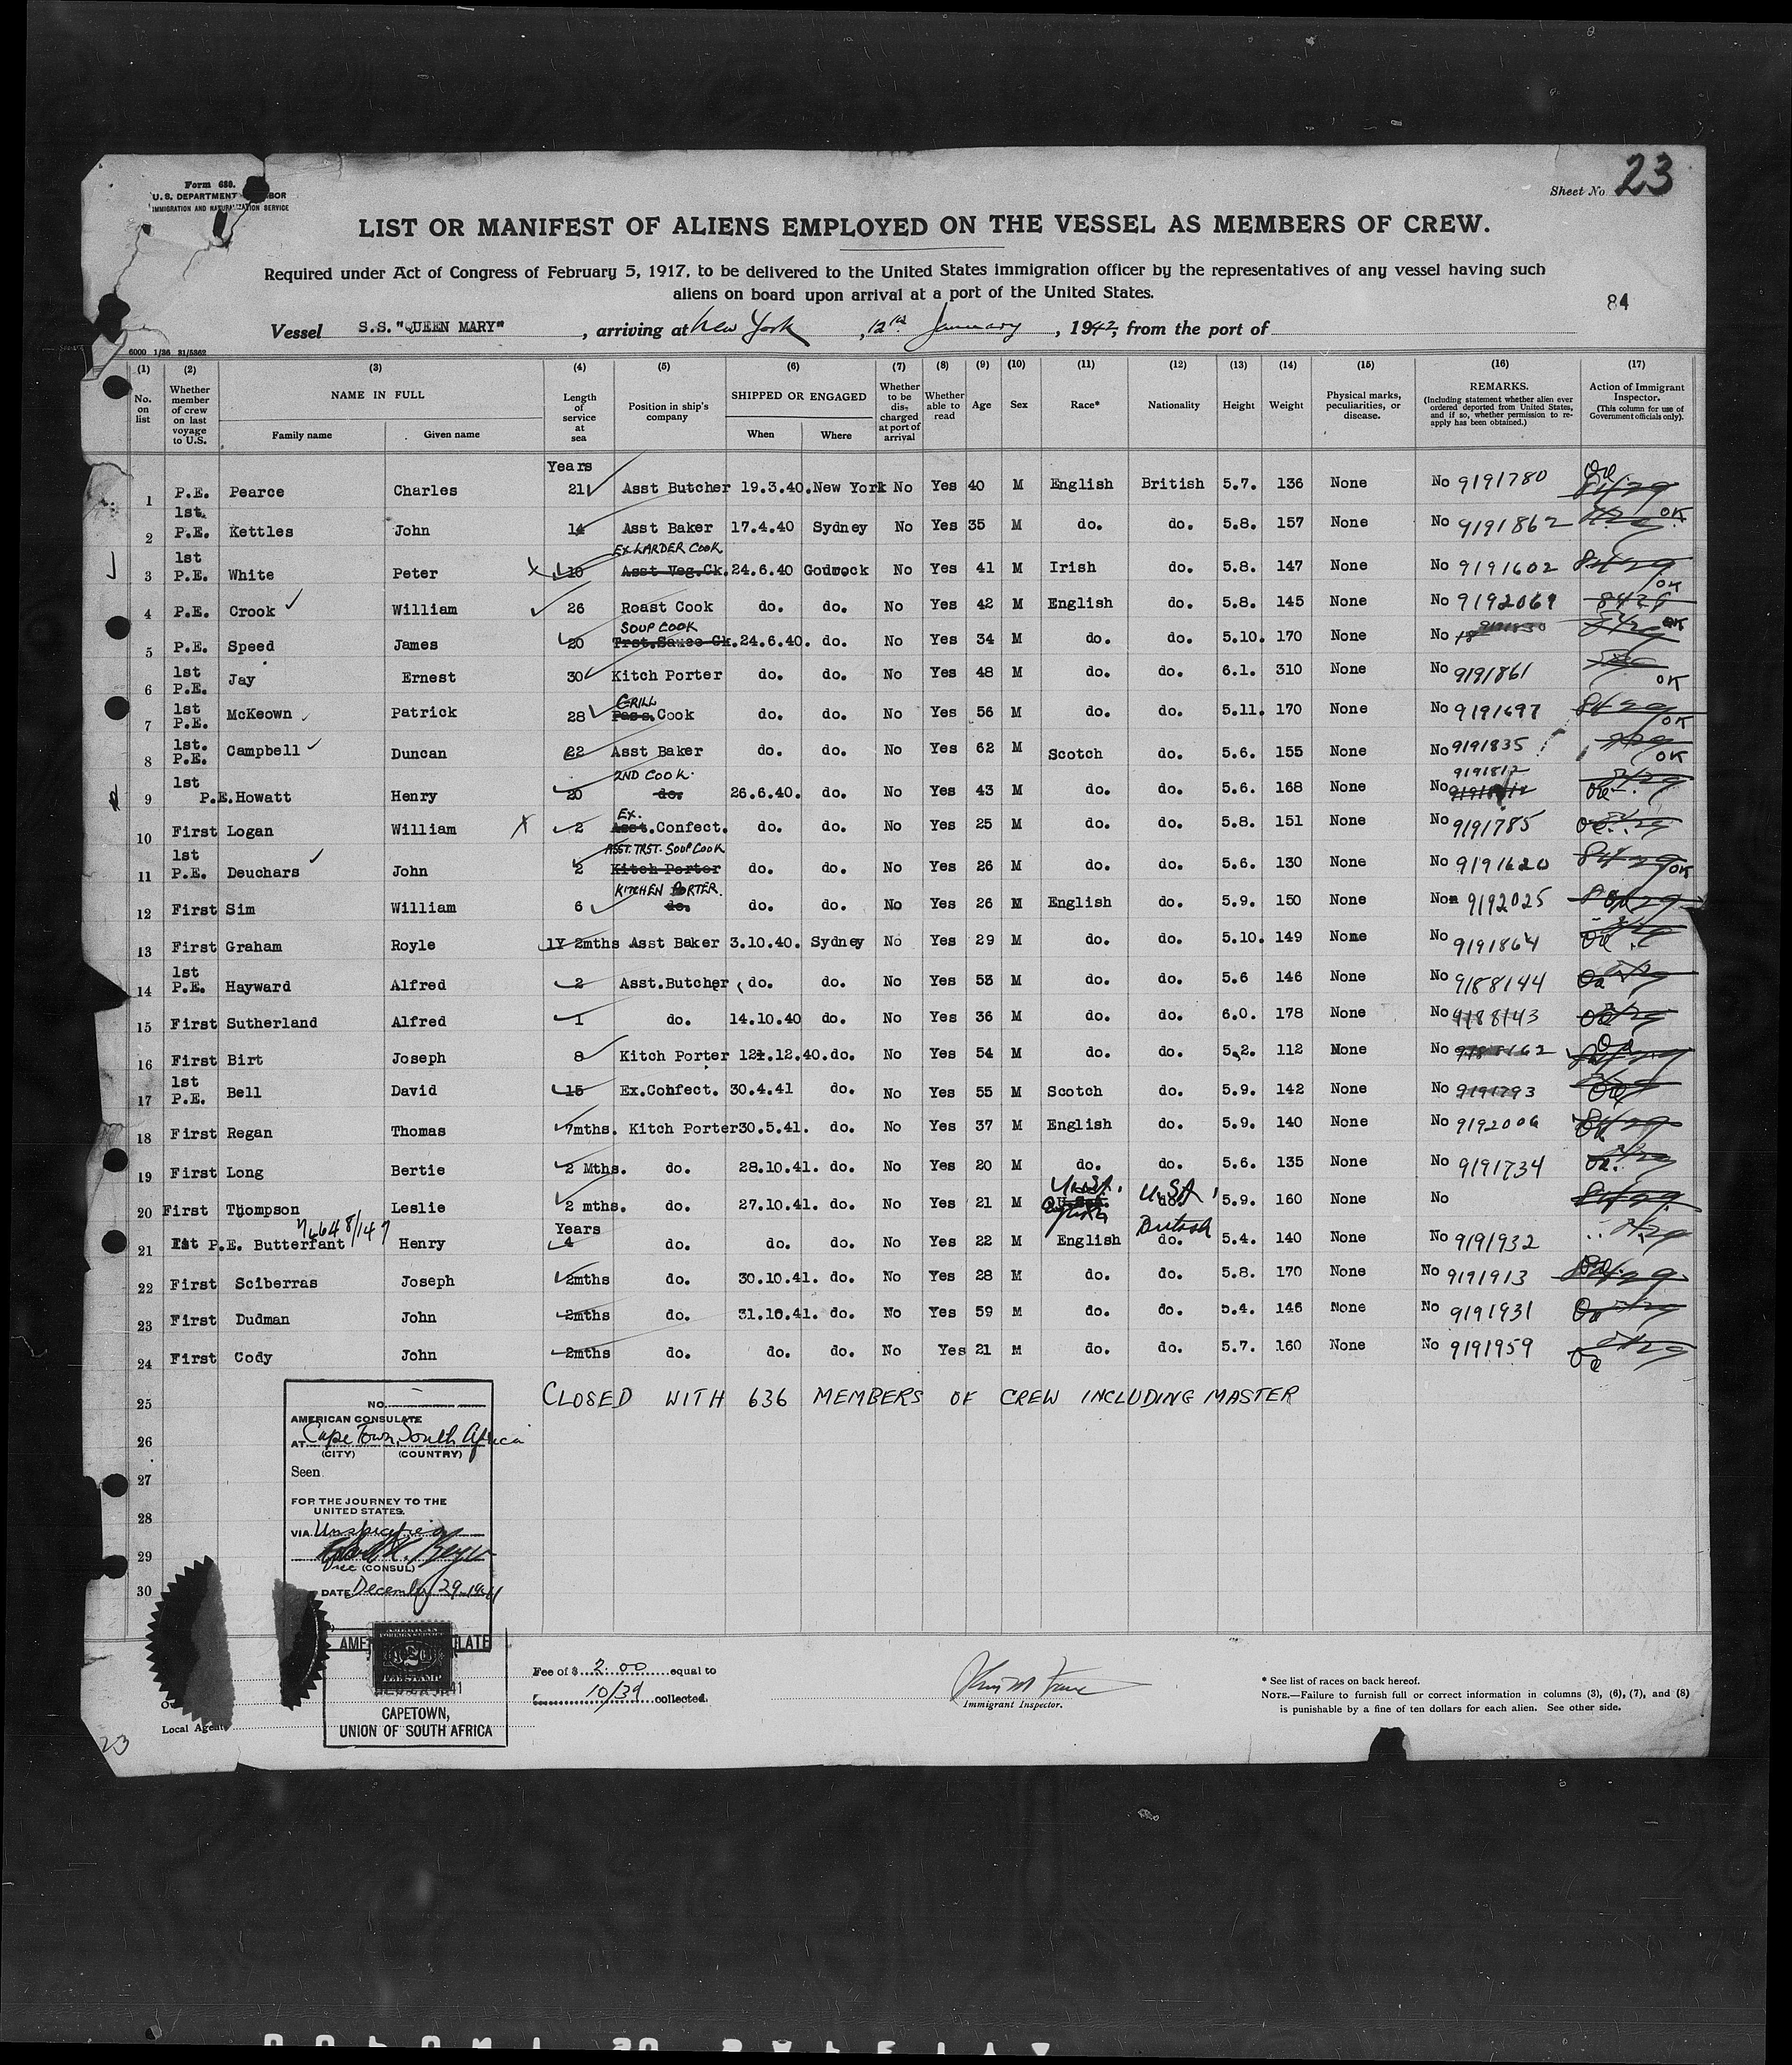 Form 680.
U. S. DEPARTMENT
IMMIGRATION AND NATURALIZATION SERVICE
Sheet No. 23
LIST OR MANIFEST OF ALIENS EMPLOYED ON THE VESSEL AS MEMBERS OF CREW.
Required under Act of Congress of February 5, 1917, to be delivered to the United States immigration officer by the representatives of any vessel having such
aliens on board upon arrival at a port of the United States.
84
Vessel S.S. "QUEEN MARY", arriving at New York, 12th January, 1942, from the port of
6000 1/36 31/5362
(1) (2) (3) (4) (5) (6) (7) (8) (9) (10) (11) (12) (13) (14) (15) (16) (17)
No. on list
Whether member of crew on last voyage to U.S.
NAME IN FULL
Family name
Given name
Length of service at sea
Position in ship's company
SHIPPED OR ENGAGED
When
Where
Whether to be discharged at port of arrival
Whether able to read
Age
Sex
Race*
Nationality
Height
Weight
Physical marks, peculiarities, or disease.
REMARKS.
(Including statement whether alien ever ordered deported from United States, and if so, whether permission to reapply has been obtained.)
Action of Immigrant Inspector.
(This column for use of Government officials only).
Years
1 P.E. Pearce Charles 21 Asst Butcher 19.3.40. New York No Yes 40 M English British 5.7. 136 None No 9191780
2 1st. P.E. Kettles John 14 Asst Baker 17.4.40 Sydney No Yes 35 M do. do. 5.8. 157 None No 9191862 OK
EX LARDER COOK
3 1st P.E. White Peter 10 Asst Veg.Ck. 24.6.40 Gourock No Yes 41 M Irish do. 5.8. 147 None No 9191602 8429 OK
4 P.E. Crook William 26 Roast Cook do. do. No Yes 42 M English do. 5.8. 145 None No 9192069 8429
SOUP COOK
5 P.E. Speed James 20 Trst.Sauce Ck. 24.6.40. do. No Yes 34 M do. do. 5.10. 170 None No OK
6 1st P.E. Jay Ernest 30 Kitch Porter do. do. No Yes 48 M do. do. 6.1. 310 None No 9191861 OK
GRILL
7 1st P.E. McKeown Patrick 28 Pass.Cook do. do. No Yes 56 M do. do. 5.11. 170 None No 9191697 8429 OK
8 1st. P.E. Campbell Duncan 22 Asst Baker do. do. No Yes 62 M Scotch do. 5.6. 155 None No 9191835 OK
2ND COOK.
9 1st P.E. Howatt Henry 20 do. 26.6.40. do. No Yes 43 M do. do. 5.6. 168 None No 9191812
EX.
10 First Logan William 2 Asst.Confect. do. do. No Yes 25 M do. do. 5.8. 151 None No 9191785
ASST. TRST. SOUP COOK
11 1st P.E. Deuchars John 2 Kitch Porter do. do. No Yes 26 M do. do. 5.6. 130 None No 9191620 8429 OK
KITCHEN PORTER.
12 First Sim William 6 do. do. do. No Yes 26 M English do. 5.9. 150 None No 9192025
13 First Graham Royle 1Y 2mths Asst Baker 3.10.40. Sydney No Yes 29 M do. do. 5.10. 149 None No 9191864
14 1st P.E. Hayward Alfred 2 Asst.Butcher do. do. No Yes 53 M do. do. 5.6 146 None No 9188144
15 First Sutherland Alfred 1 do. 14.10.40 do. No Yes 36 M do. do. 6.0. 178 None No 9188143
16 First Birt Joseph 8 Kitch Porter 12.12.40. do. No Yes 54 M do. do. 5.2. 112 None No 9188162
17 1st P.E. Bell David 15 Ex.Confect. 30.4.41 do. No Yes 55 M Scotch do. 5.9. 142 None No 9191793
18 First Regan Thomas 7mths. Kitch Porter 30.5.41. do. No Yes 37 M English do. 5.9. 140 None No 9192006
19 First Long Bertie 2 Mths. do. 28.10.41. do. No Yes 20 M do. do. 5.6. 135 None No 9191734
20 First Thompson Leslie 2 mths. do. 27.10.41. do. No Yes 21 M English U.S.A. do. 5.9. 160 None No
7664 8/147
Years
British
21 1st P.E. Butterfant Henry 4 do. do. do. No Yes 22 M English do. 5.4. 140 None No 9191932
22 First Sciberras Joseph 2mths do. 30.10.41. do. No Yes 28 M do. do. 5.8. 170 None No 9191913
23 First Dudman John 2mths do. 31.10.41. do. No Yes 59 M do. do. 5.4. 146 None No 9191931
24 First Cody John 2mths do. do. do. No Yes 21 M do. do. 5.7. 160 None No 9191959
25 CLOSED WITH 636 MEMBERS OF CREW INCLUDING MASTER
26
27
28
29
30
NO.
AMERICAN CONSULATE
AT Cape Town, South Africa
(CITY) (COUNTRY)
Seen
FOR THE JOURNEY TO THE
UNITED STATES.
VIA Unspecified
Vice (CONSUL)
DATE December 29-1941
CAPETOWN,
UNION OF SOUTH AFRICA
Local Agent
Fee of $ 2.00 equal to
10/39 collected.
Immigrant Inspector.
* See list of races on back hereof.
NOTE.—Failure to furnish full or correct information in columns (3), (6), (7), and (8)
is punishable by a fine of ten dollars for each alien. See other side.
23